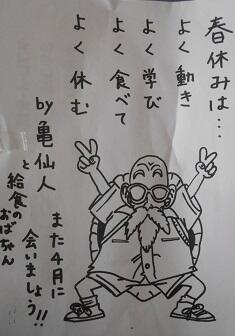 春休みは…
よく動き
よく学び
よく食べて
よく休む
by亀仙人
と
給食の
おばちゃん
また4月に
会いましょう!!